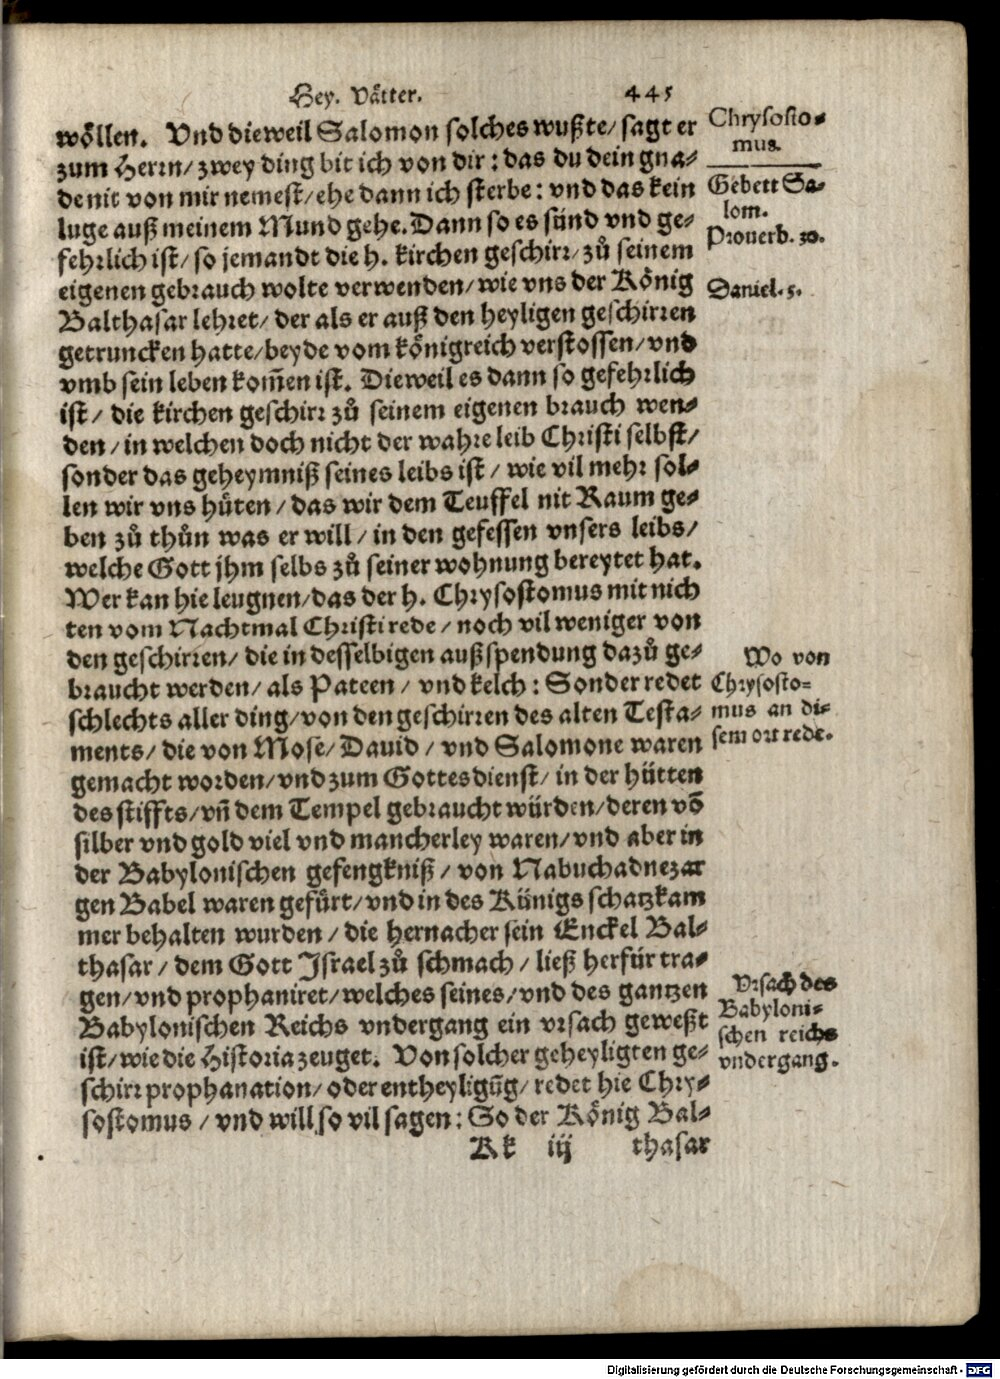 Hey. Vätter. 445
wöllen. Vnd dieweil Salomon solches wußte/ sagt er
zum Herrn/ zwey ding bit ich von dir: das du dein gna-
de nit von mir nemest/ ehe dann ich sterbe: vnd das kein
luge auß meinem Mund gehe. Dann so es sünd vnd ge-
fehrlich ist/ so jemandt die h. kirchen geschirr/ zů seinem
eigenen gebrauch wolte verwenden/ wie vns der König
Balthasar lehret/ der als er auß den heyligen geschirren
getruncken hatte/ beyde vom königreich verstossen/ vnd
vmb sein leben kom̃en ist. Dieweil es dann so gefehrlich
ist/ die kirchen geschirr zů seinem eigenen brauch wen-
den/ in welchen doch nicht der wahre leib Christi selbst/
sonder das geheymniß seines leibs ist/ wie vil mehr sol-
len wir vns hüten/ das wir dem Teuffel nit Raum ge-
ben zů thůn was er will/ in den gefessen vnsers leibs/
welche Gott jhm selbs zů seiner wohnung bereytet hat.
Wer kan hie leugnen/ das der h. Chrysostomus mit nich
ten vom Nachtmal Christi rede/ noch vil weniger von
den geschirren/ die in desselbigen außspendung dazů ge-
braucht werden/ als Pateen/ vnd kelch: Sonder redet
schlechts aller ding/ von den geschirren des alten Testa-
ments/ die von Mose/ Dauid/ vnd Salomone waren
gemacht worden/ vnd zum Gottesdienst/ in der hütten
des stiffts/ vñ dem Tempel gebraucht würden/ deren võ
silber vnd gold viel vnd mancherley waren/ vnd aber in
der Babylonischen gefengkniß/ von Nabuchadnezar
gen Babel waren gefürt/ vnd in des Künigs schatzkam
mer behalten wurden/ die hernacher sein Enckel Bal-
thasar/ dem Gott Jsrael zů schmach/ ließ herfür tra-
gen/ vnd prophaniret/ welches seines/ vnd des gantzen
Babylonischen Reichs vndergang ein vrsach geweßt
ist/ wie die Historia zeuget. Von solcher geheyligten ge-
schirr prophanation/ oder entheyligũg/ redet hie Chry-
sostomus/ vnd will so vil sagen: So der König Bal-
Kk iij thasar
Chrysosto-
mus.
Gebett Sa-
lom.
Prouerb. 30.
Daniel. 5.
Wo von
Chrysosto=
mus an di-
sem ort rede.
Vrsach des
Babyloni-
schen reichs
vndergang.
Digitalisierung gefördert durch die Deutsche Forschungsgemeinschaft - DFG